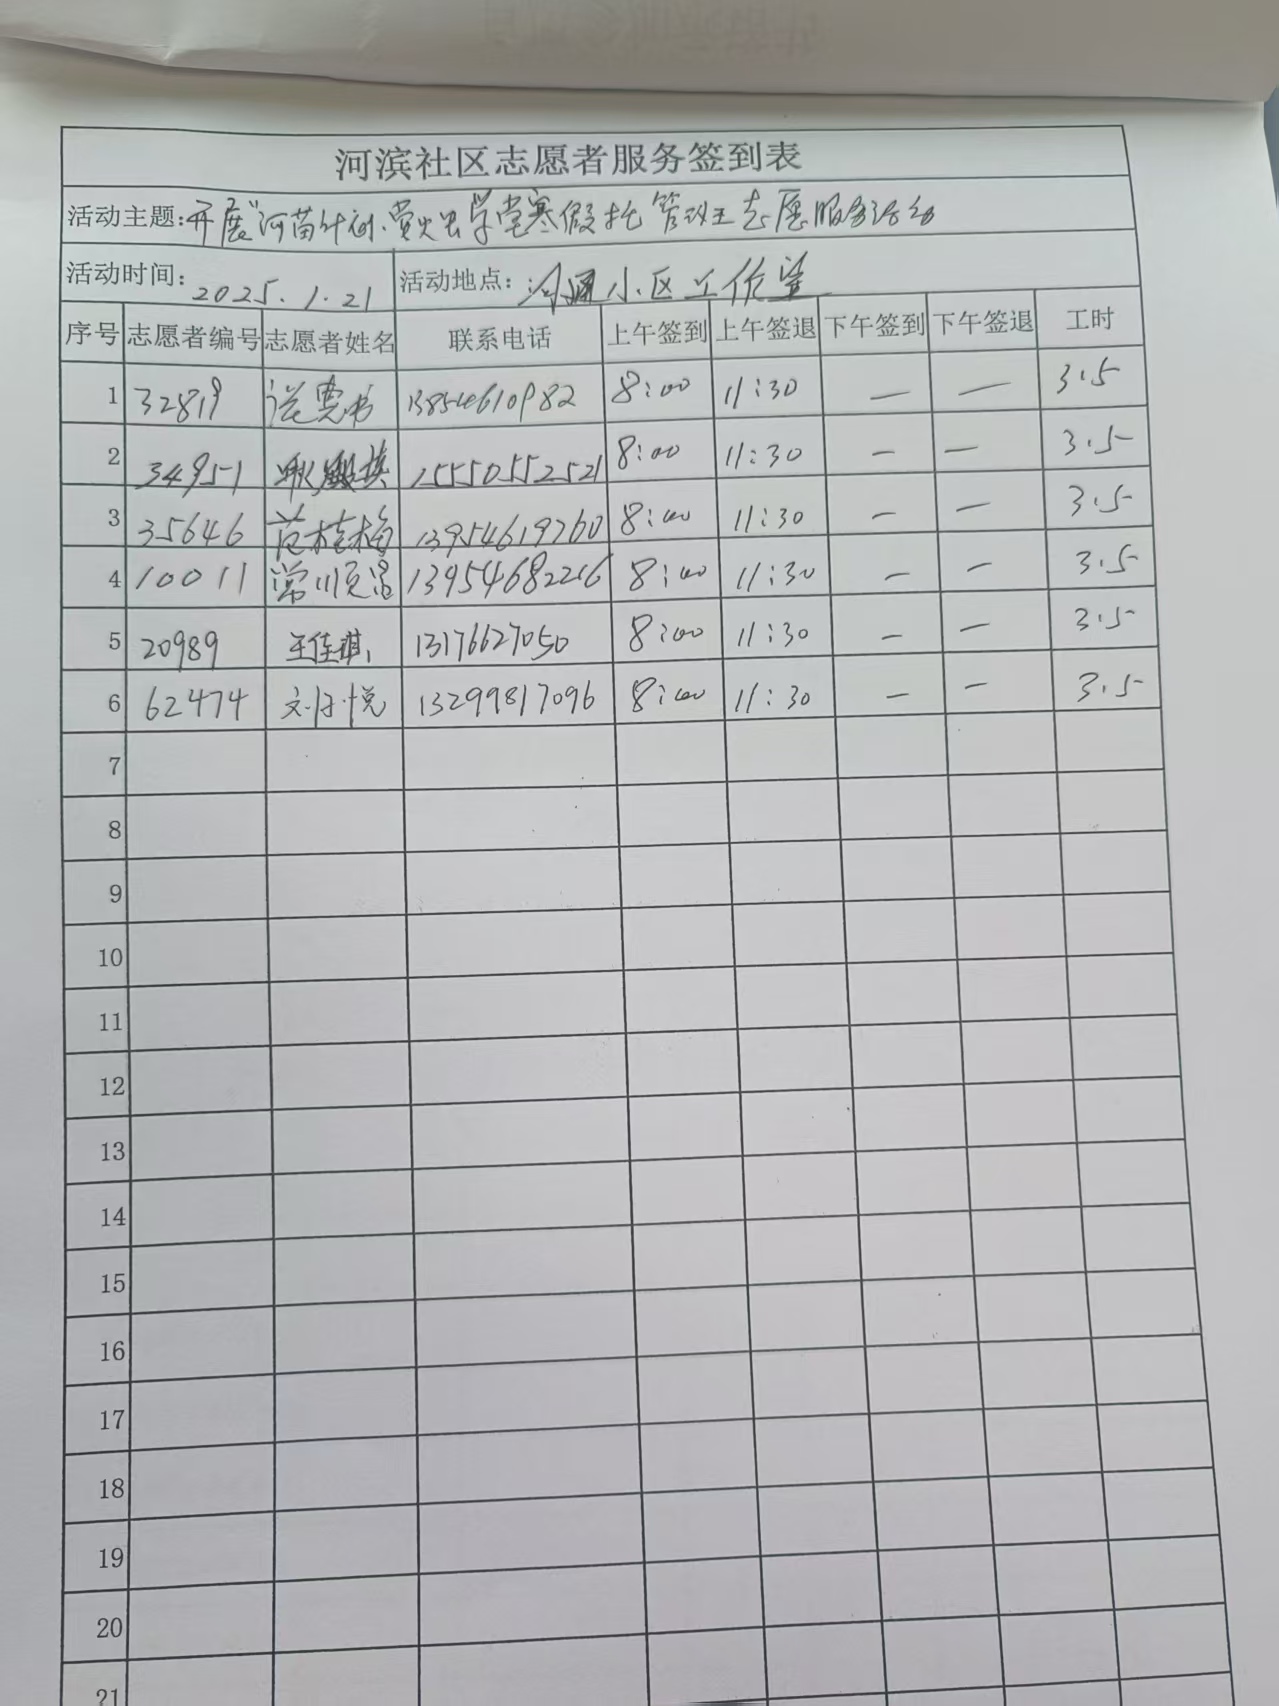 河滨社区志愿者服务签到表
活动主题:开展"河苗计划·萤火虫学堂寒假托管班"志愿服务活动
活动时间: 2025.1.21 活动地点: 小区工作室
序号 志愿者编号 志愿者姓名 联系电话 上午签到 上午签退 下午签到 下午签退 工时
1 32819 13854610982 8:00 11:30 — — 3.5
2 34951 15550552521 8:00 11:30 — — 3.5
3 35646 范桂梅 13954619760 8:00 11:30 — — 3.5
4 10011 常顺 13954682216 8:00 11:30 — — 3.5
5 20989 王佳琪 13176627050 8:00 11:30 — — 3.5
6 62474 悦 13299817096 8:00 11:30 — — 3.5
7
8
9
10
11
12
13
14
15
16
17
18
19
20
21